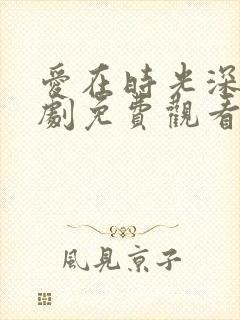 愛在時光深
劇免費觀看
風見京子